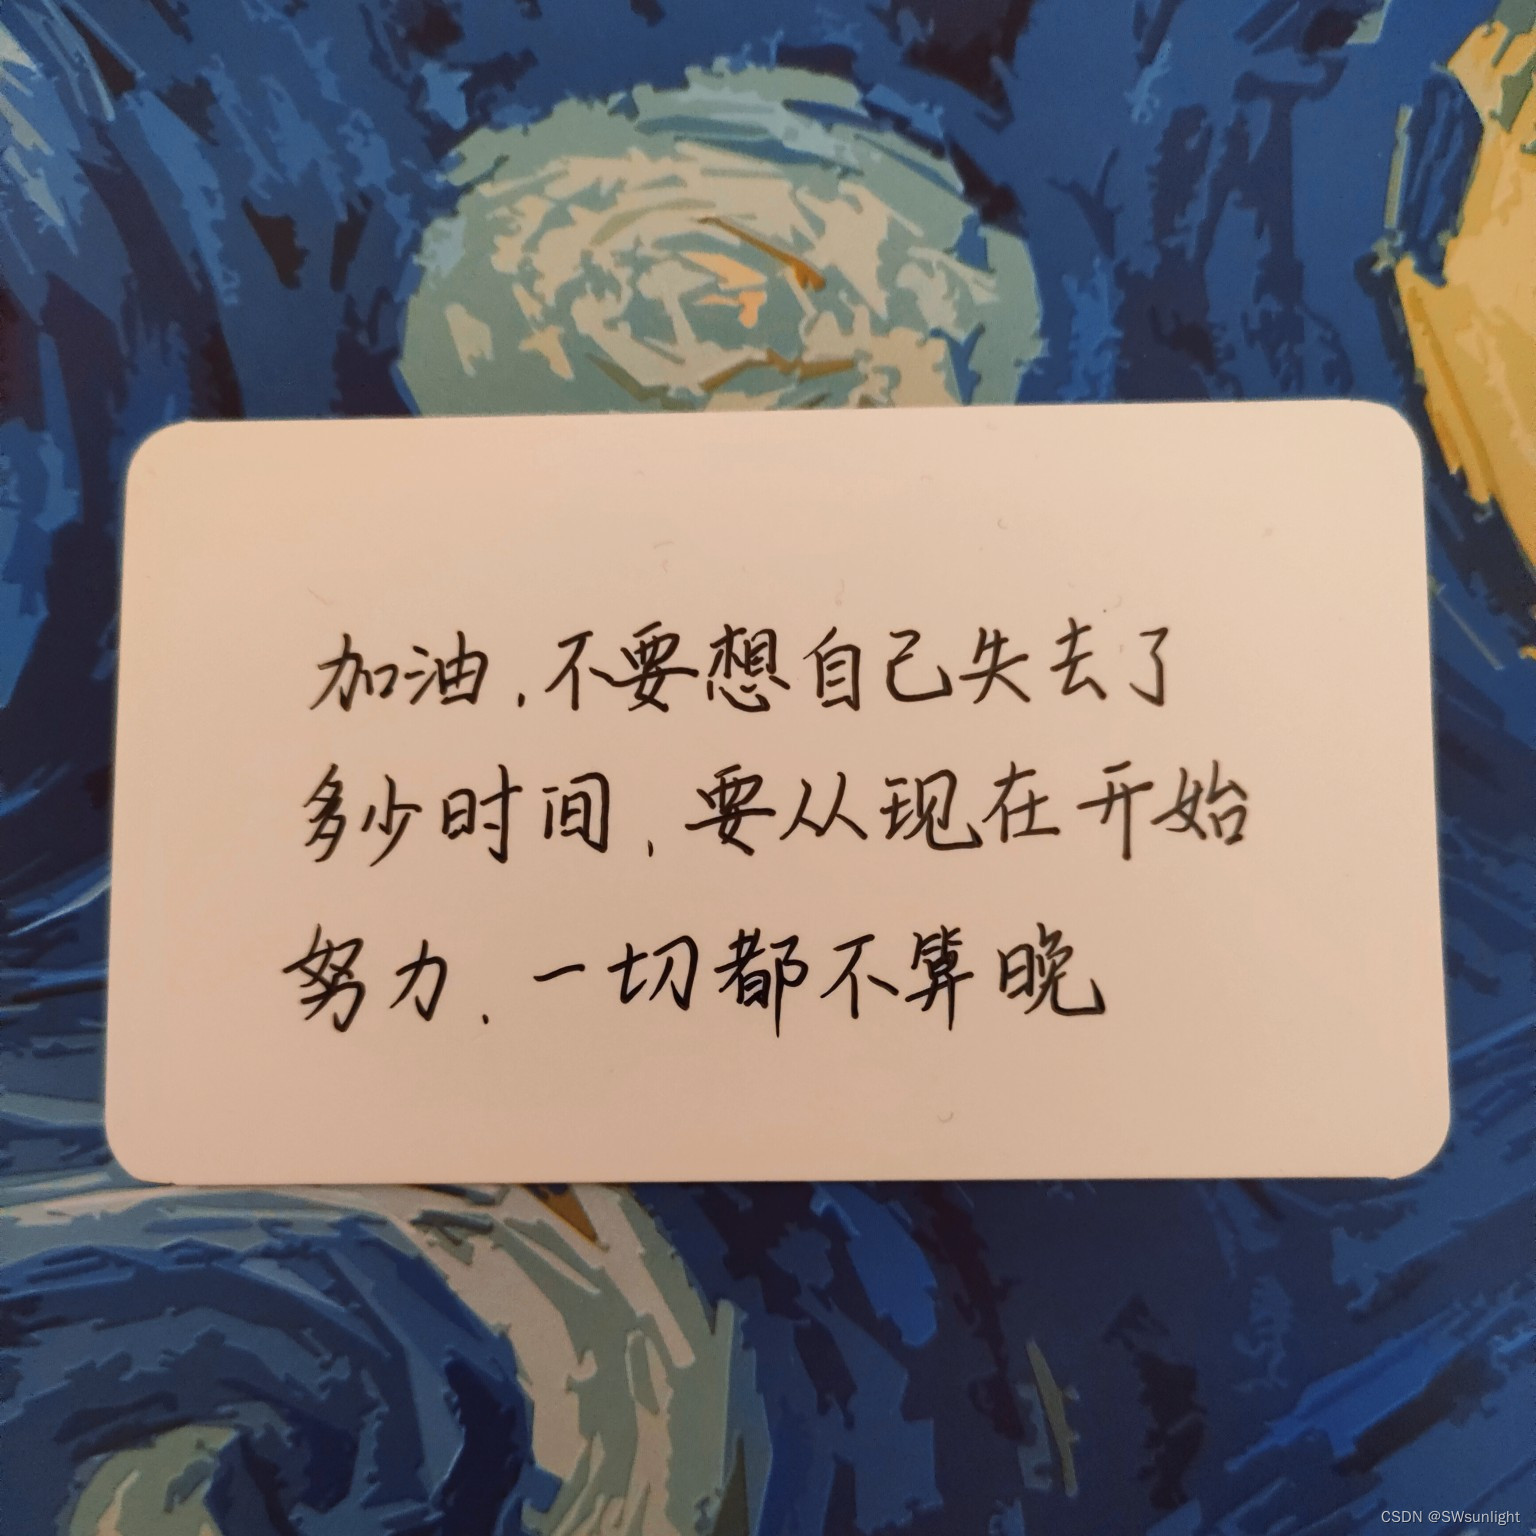 加油,不要想自己失去了
多少时间,要从现在开始
努力,一切都不算晚
CSDN @SWsunlight